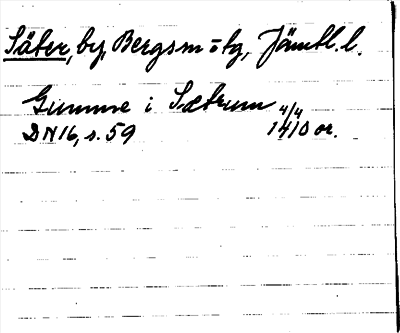 Säter, by, Bergs sn o tg, Jämtl. l.
Gumme i Sætrum 4/4
DN16, s. 59 1410 or.